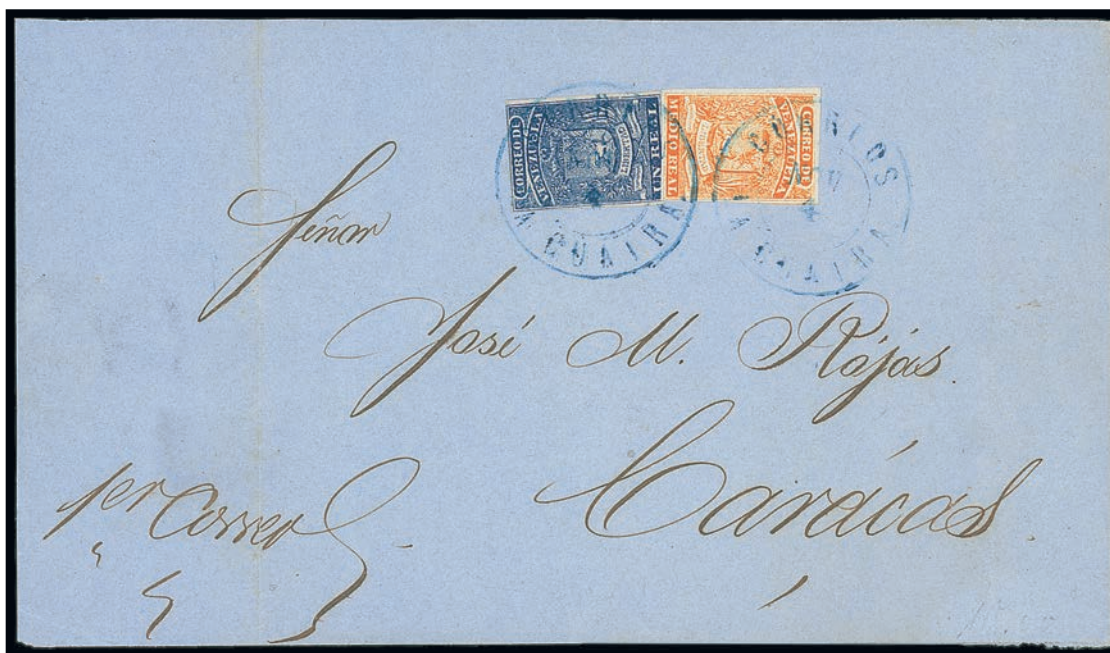 CORREO DE
VENEZUELA
UN REAL
CORREO DE
VENEZUELA
MEDIO REAL
LIBERTAD
GUAIRA
GUAIRA
Señor
José M. Rójas.
Carácas.
por Correo